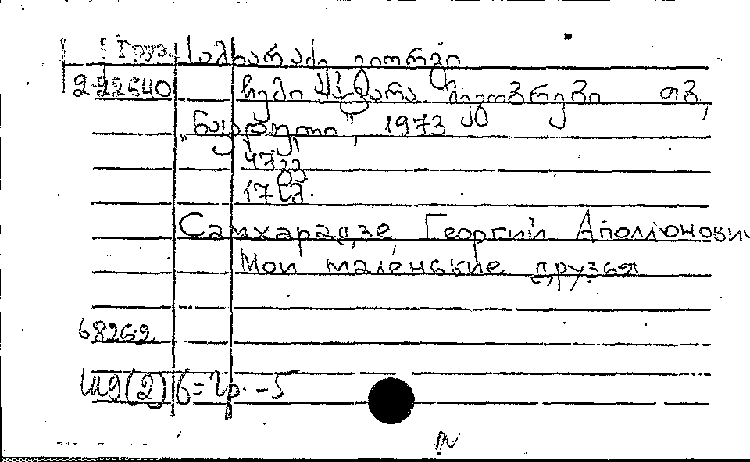 Груз. სამხარაძე გიორგი
2-22640 ჩემი პატარა მეგობრები თბ.,
„ნაკადული“, 1973
47 გვ
17 სმ.
Самхарадзе Георгий Аполлонович
Мои маленькие друзья
68262
Ш9(2) 6=Гр. -5